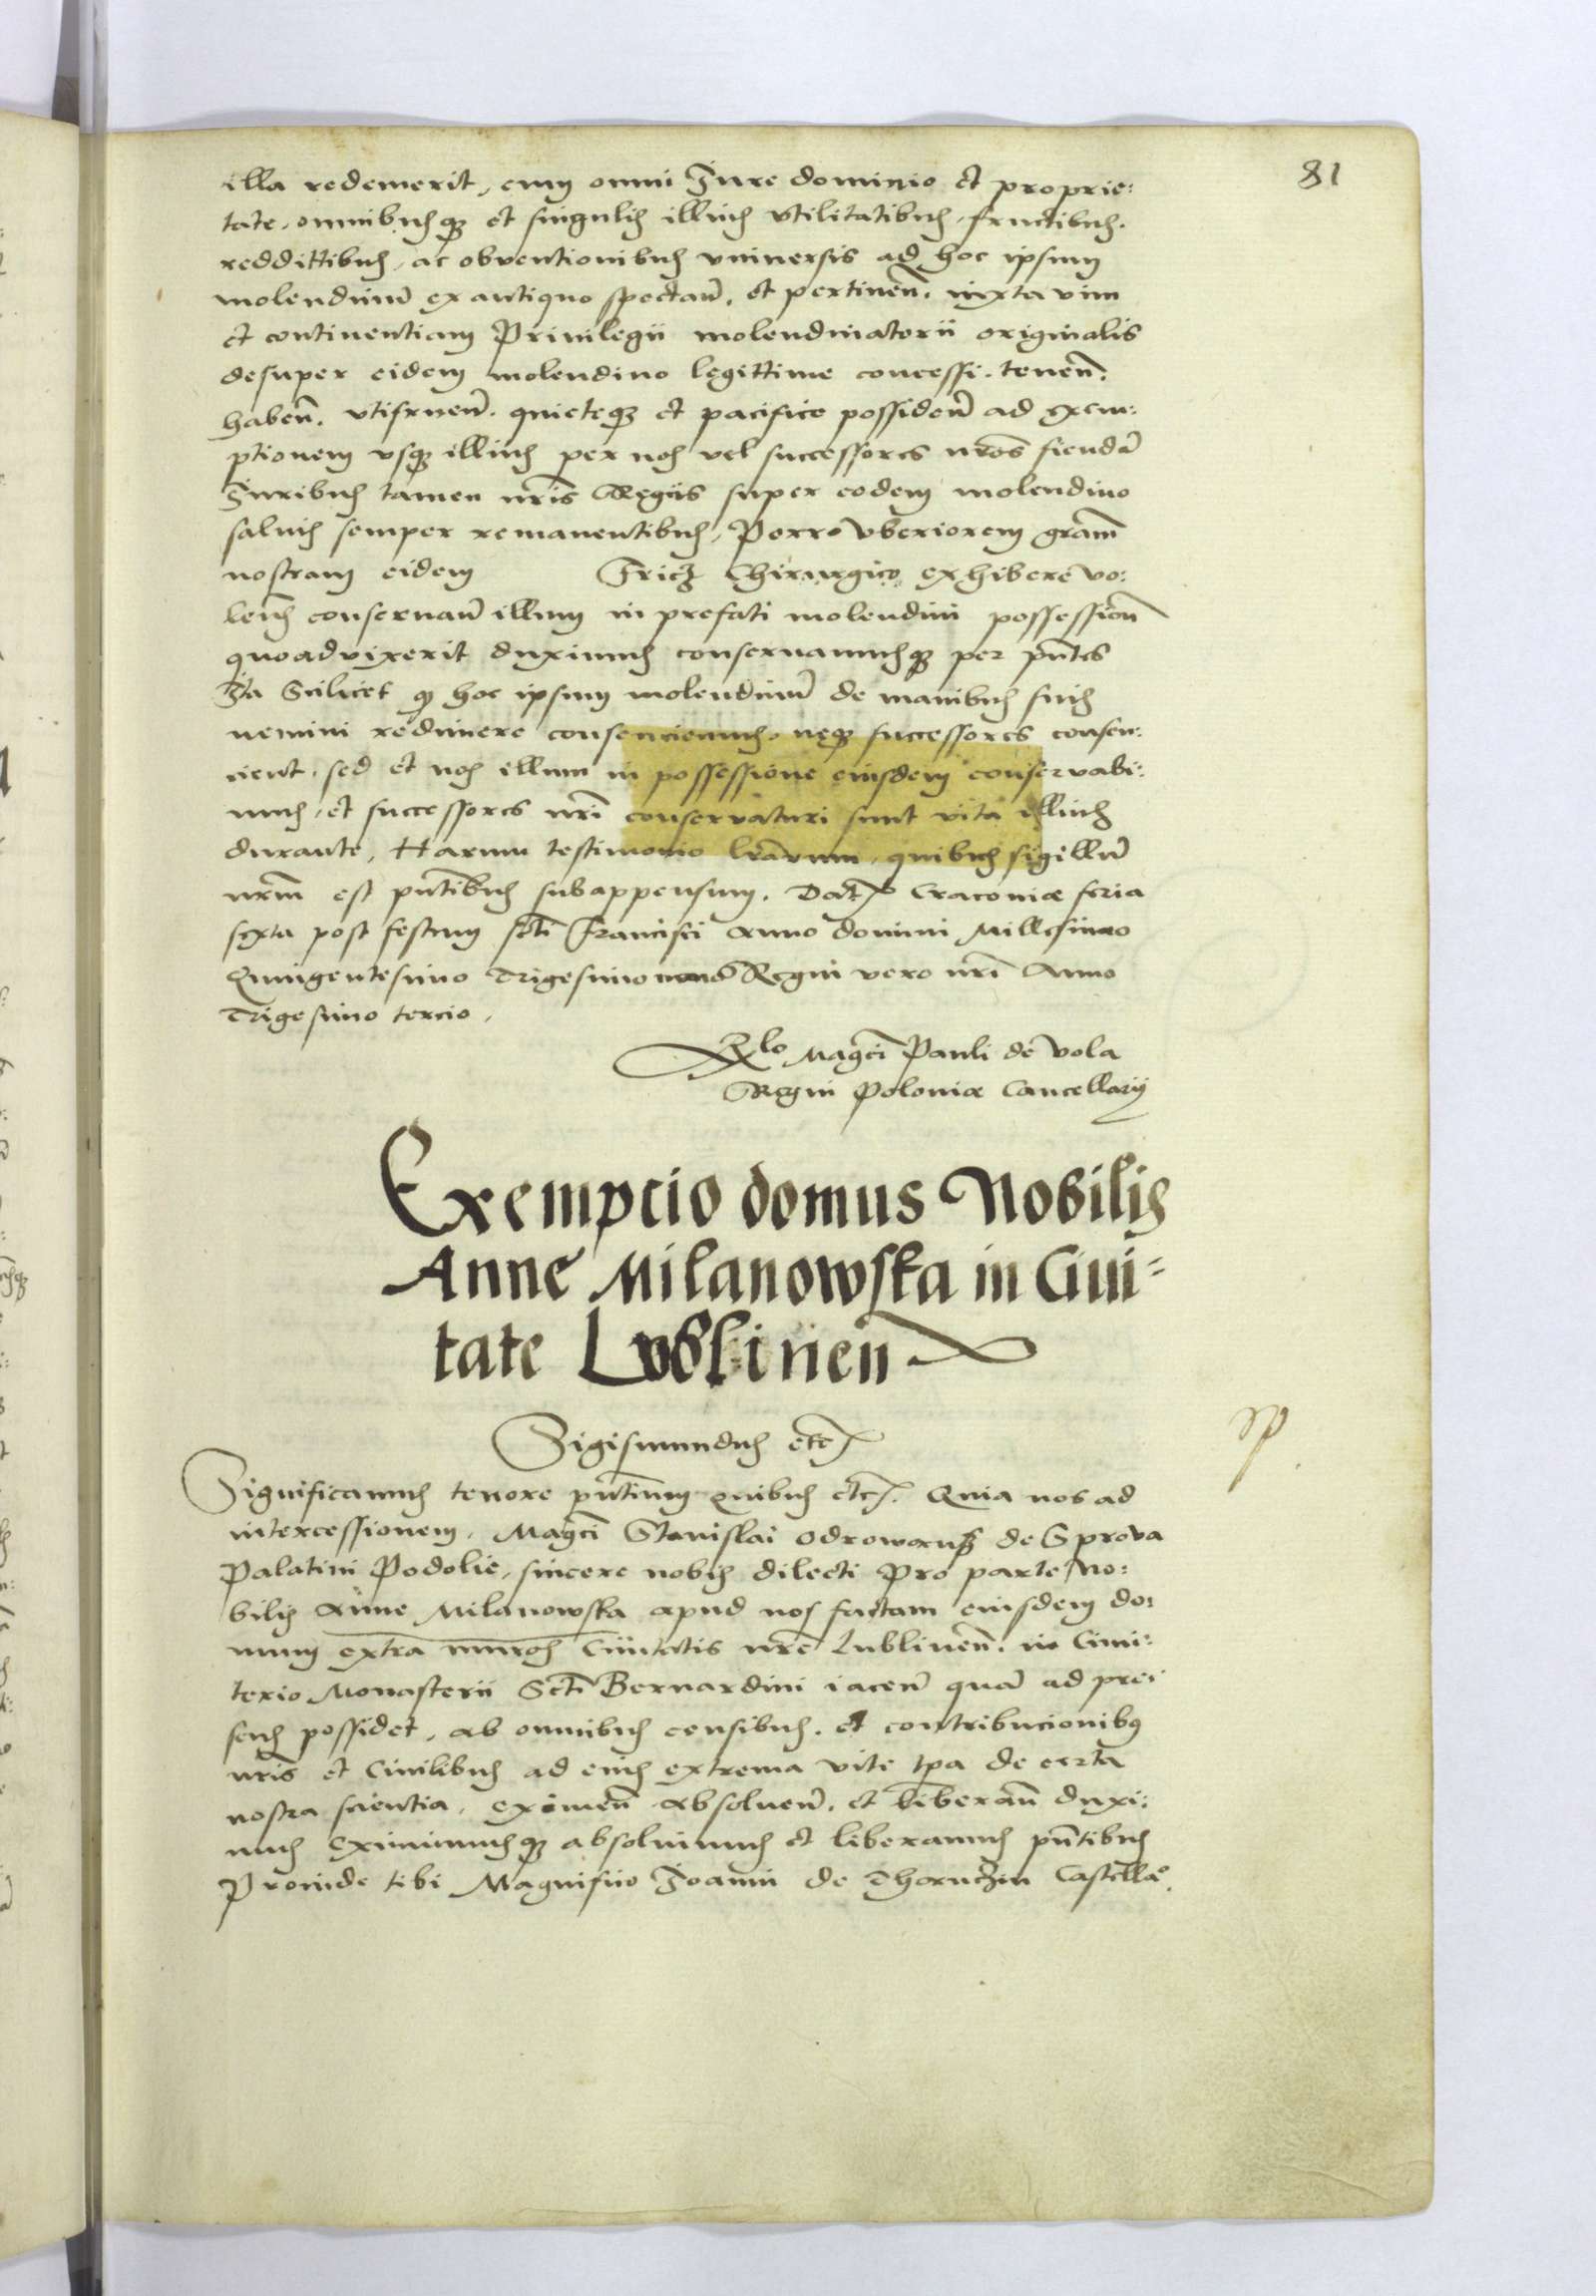 81
illa redemerit, cum omni Jure dominio et proprie:
tate, omnibusq3 et singulis illius vtilitatibus, fructibus,
reddittibus, ac obventionibus vniversis ad hoc ipsum
molendinu ex antiquo spectan. et pertinen. iuxta vim
et continentiam Privilegii molendinatorii originalis
desuper eidem molendino legittime concessi. tenen.
haben. vtifruen. quieteq3 et pacifice possiden ad exem:
ptionem vsq3 illius per nos vel successores nros fienda
Juribus tamen nris Regiis super eodem molendino
salvis semper remanentibus, Porro vberiorem gram
nostram eidem Fricz Chirurgico exhibere vo:
len conservan illum in prefati molendini possession
quoad vixerit duximus conservamusq3 per pntes
Ita Scilicet q hoc ipsum molendinu de manibus suis
nemini redimere consenciemus, neq3 successores consen:
cient, sed et nos illum in possessione eiusdem conservabi:
mus, et successores nri conservaturi sunt vita illius
durante, Harum testimonio lrarum, quibus sigillu
nrm est pntibus subappensum. Dat Cracoviæ feria
sexta post festum scti Francisci Anno domini Millesimo
Quingentesimo Trigesimo nono Regni vero nri Anno
Trigesimo tercio.
Rlo Magci Pauli de Vola
Regni Poloniæ Cancellarij
Exempcio domus Nobilis
Anne Milanowska in Civi=
tate Lublinen
Sigismundus etc
Significamus tenore pntium quibus etc. Quia nos ad
intercessionem, Magci Stanislai Odrowansz de Sprova
Palatini Podolie, sincere nobis dilecti Pro parte No:
bilis Anne Milanowska apud nos factam eiusdem do:
mum extra muros Civitatis nre Lublinen. in Cimi:
terio Monasterii Scti Bernardini iacen qua ad pre:
sens possidet, ab omnibus censibus, et contribucionibus
nris et Civilibus ad eius extrema vite tpa de certa
nostra scientia, eximen absoluen, et liberan duxi:
mus Eximimusq3 absoluimus et liberamus pntibus
Proinde tibi Magnifico Joanni de Tharnczin Castella